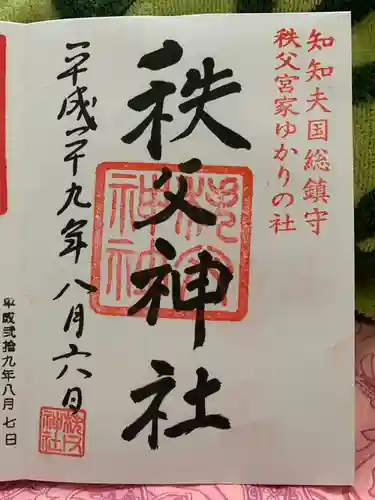 知知夫国総鎮守
秩父宮家ゆかりの社
秩父神社
平成二十九年八月六日
平成弐拾九年八月七日
秩父神社
秩父神社